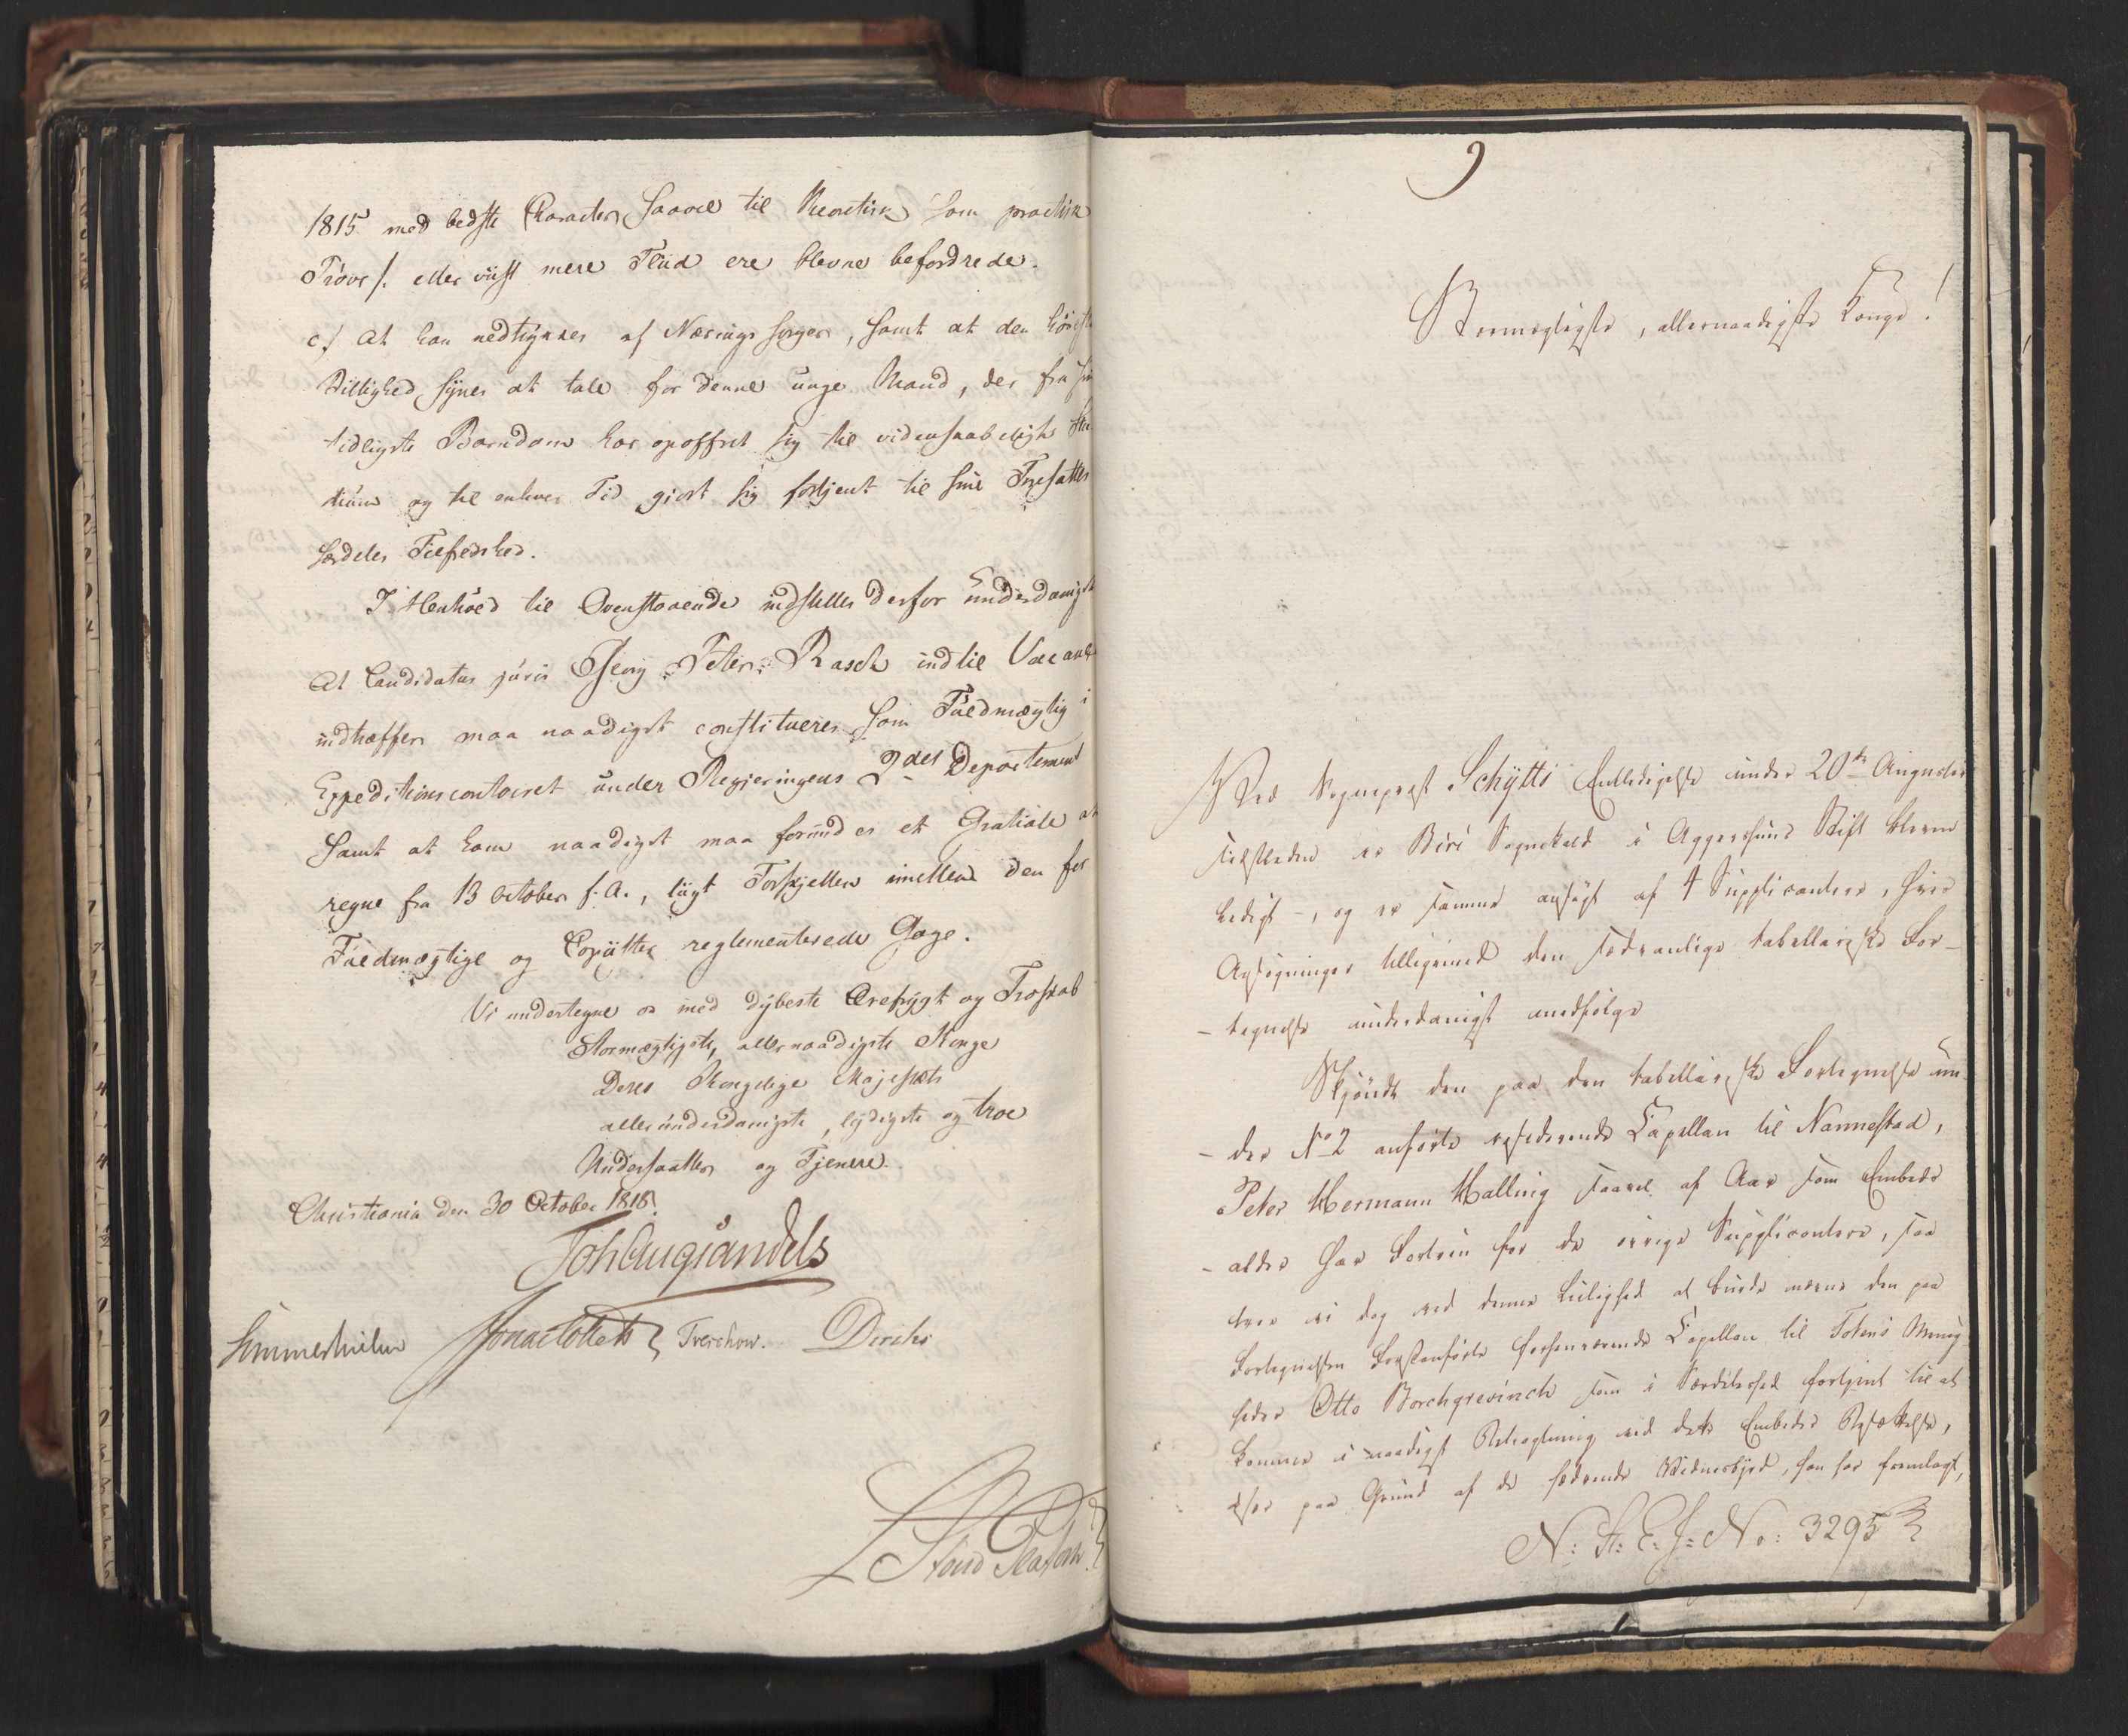 1815 med bedste Character saavel til theoretisk som practisk
Prøve/. eller viist mere Fliid ere blevne befordrede.
c./ At han nedtrykkes af Nærings sorger, samt at den höieste
Billighed synes at tale for denne unge Mand, der fra sin
tidligste Barndom har opoffret sig til videnskabeligt Stu
dium og til enhver Tid giort sig fortjent til sine Foresattes
særdeles Tilfredshed.
I Henhold til Ovenstaaende indstilles derfor underdanigst
At Candidatus juris Georg Peter Rasch indtil Vacance
indtræffer maa naadigst constitueres som Fuldmægtig i
Expeditionscontoiret under Regjeringens 2det Departement
samt at ham naadigst maa forundes et Gratiale at
regne fra 13 October s. A., liigt Forskjellen imellem den for
Fuldmægtige og Copiister reglementerede Gage.
Vi undertegne os med dybeste Ærefrygt og Troskab
Stormægtigste, allernaadigste Konge
Deres Kongelige Majestæts
allerunderdanigste, lydigste og troe
Undersaatter og Tjenere.
Christiania den 30 October 1818.
Joh Aug Sandels
Sommerhielm Jonas Collett Treschow. Diriks
9
Stormægtigste, allernaadigste Konge!
Ved Sogneprest Schytts Entledigelse under 20de Augusti
sidstleden er Biri Sognekald i Aggershuus Stift bleven
ledigt -, og er samme ansøgt af 4 Supplicantere, hvis
Ansøgninger tilligemed den sædvanlige tabellariske For-
- tegnelse underdanigst medfølge
Skjöndt den paa den tabellariske Fortegnelse un-
- der No 2 anførte residerende Capellan til Nannestad,
Peter Hermann Halling saavel af Aar som Embeds
- alder har Fortrin for de øvrige Supplicantere, saa
troe vi dog ved denne Leilighed at burde nævne den paa
Fortegnelsen Førstanførte forhenværende Capellan til Totens Menig
heder Otto Borchgrevinch som i Særdeleshed fortjent til at
komme i naadigst Betragtning ved dette Embedes Besættelse,
thi paa Grund af de hædrende Vidnesbyrd, han har fremlagt,
N: St: E. J: No: 3295